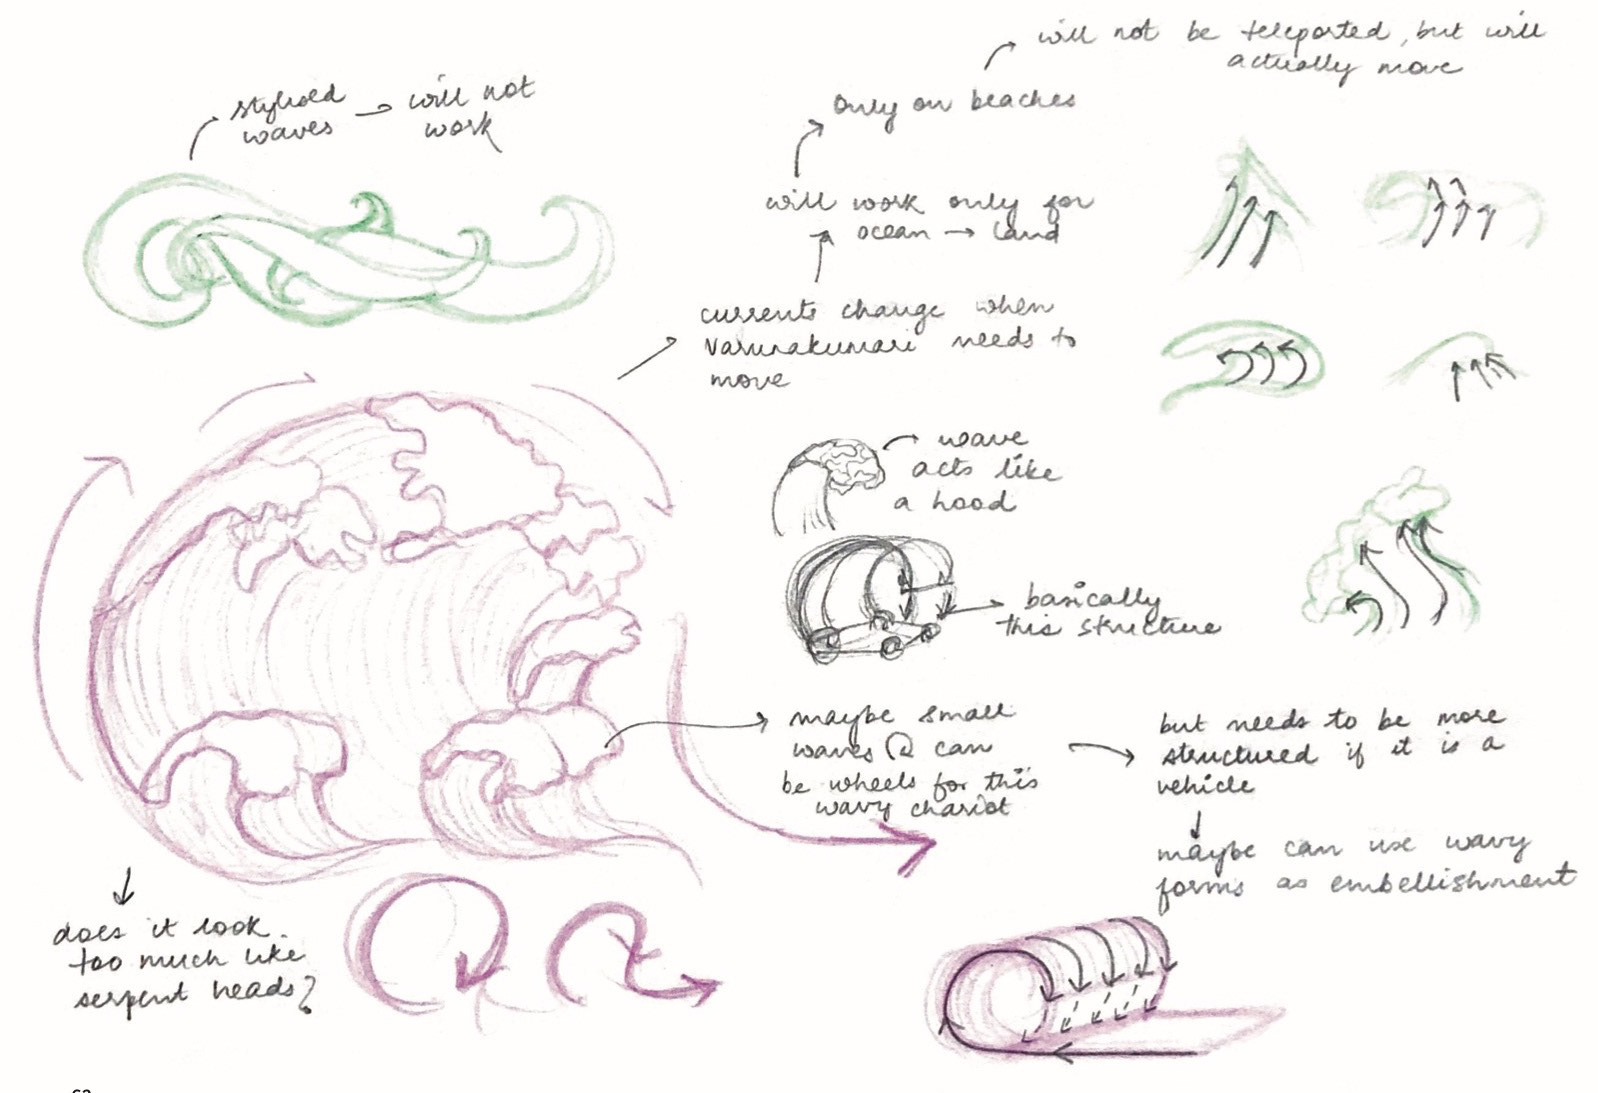 will not be teleported, but will
actually move
Only on beaches
will work only for
ocean → land
currents change when
Varunakumari needs to
move
stylized
waves → will not
work
wave
acts like
a hood
basically
this structure
maybe small
waves can
be wheels for this
wavy chariot
but needs to be more
structured if it is a
vehicle
maybe can use wavy
forms as embellishment
does it look
too much like
serpent heads?